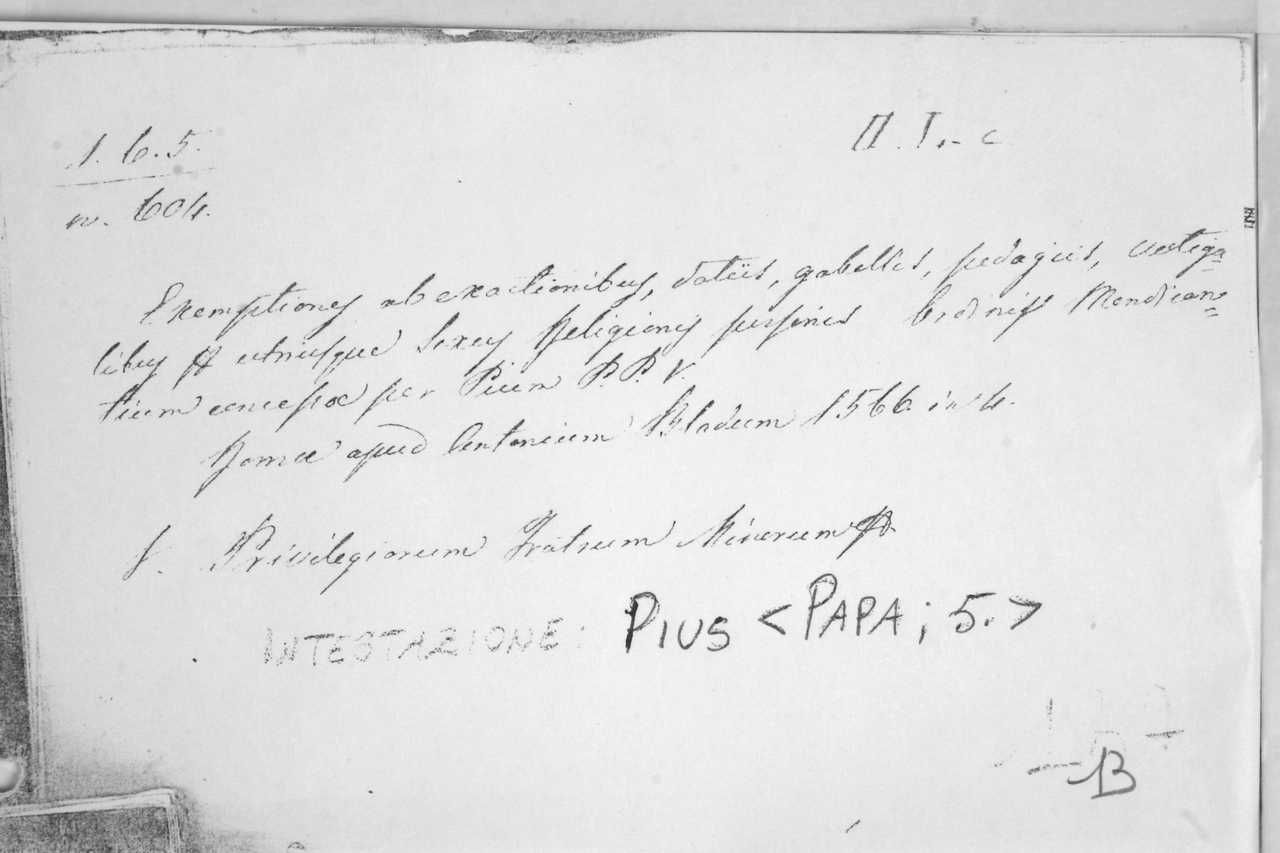 1. 6. 5.
n. 604.
Π. I.- c
Exemptiones ab exactionibus, datiis, gabellis, pedagiis, vectiga=
libus & utriusque sexus Religionis personis Ordinis Mendican=
tium concessæ per Pium P.P. V.
Romæ apud Antonium Bladum 1566 in 4.
V. Privilegiorum Fratrum Minorum &.
INTESTAZIONE: PIUS <PAPA; 5.>
B